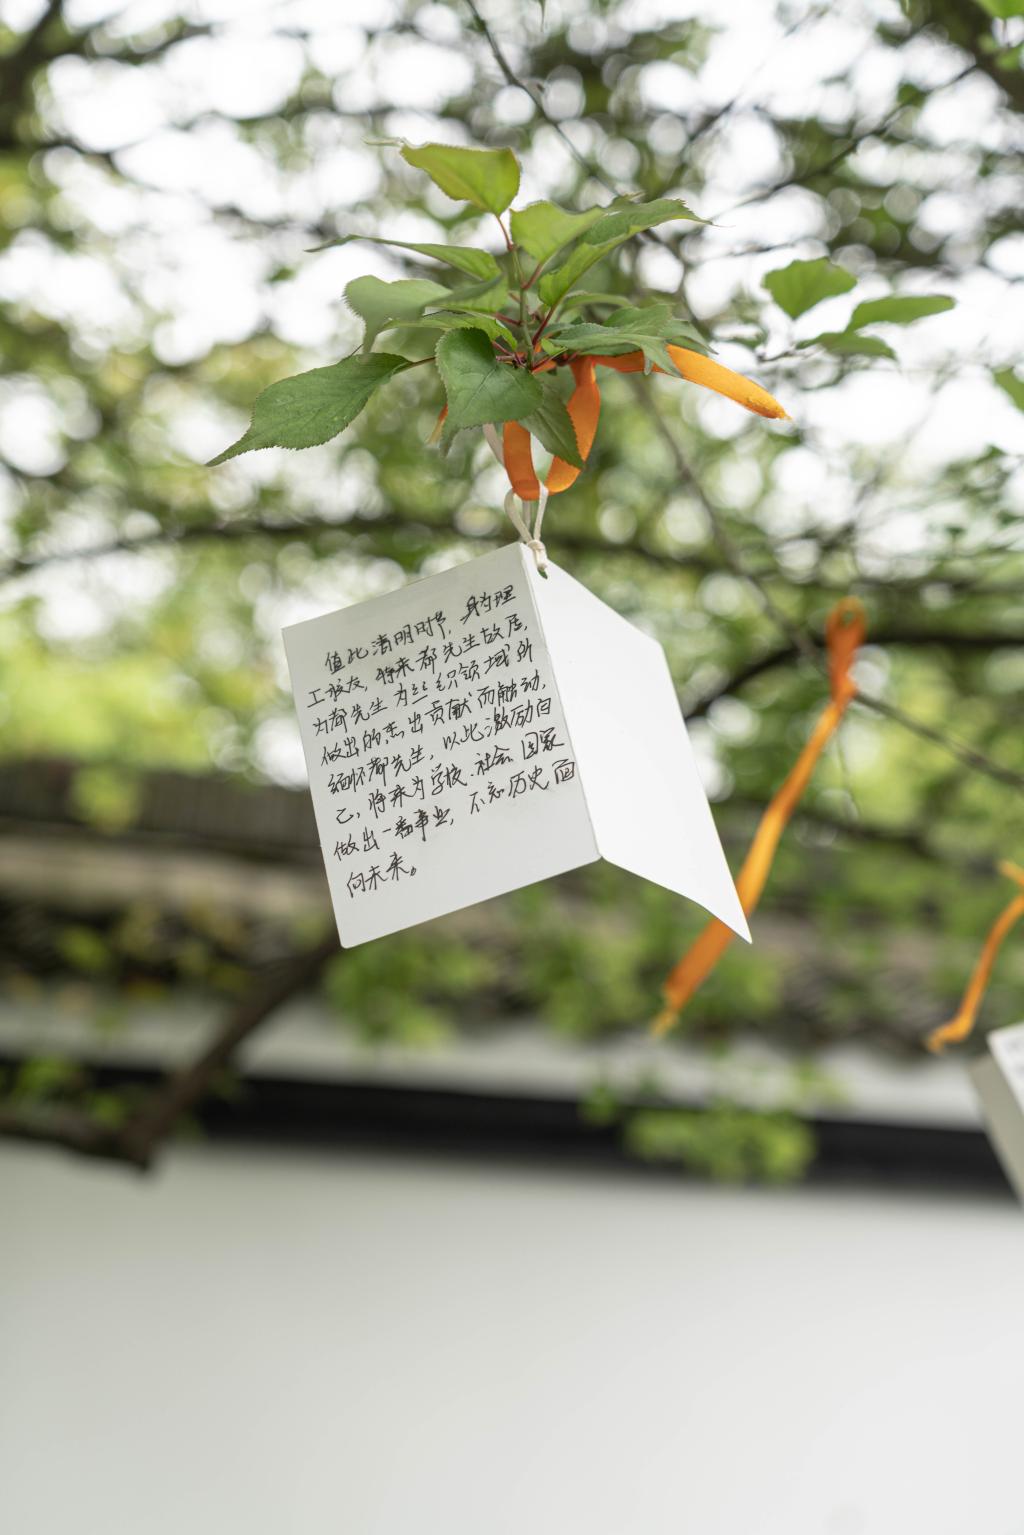 值此清明时节，身为理
工校友，将来都先生故居，
为都先生为丝织领域所
做出的杰出贡献而触动，
缅怀都先生，以此激励自
己，将来为学校、社会、国家
做出一番事业，不忘历史，面
向未来。